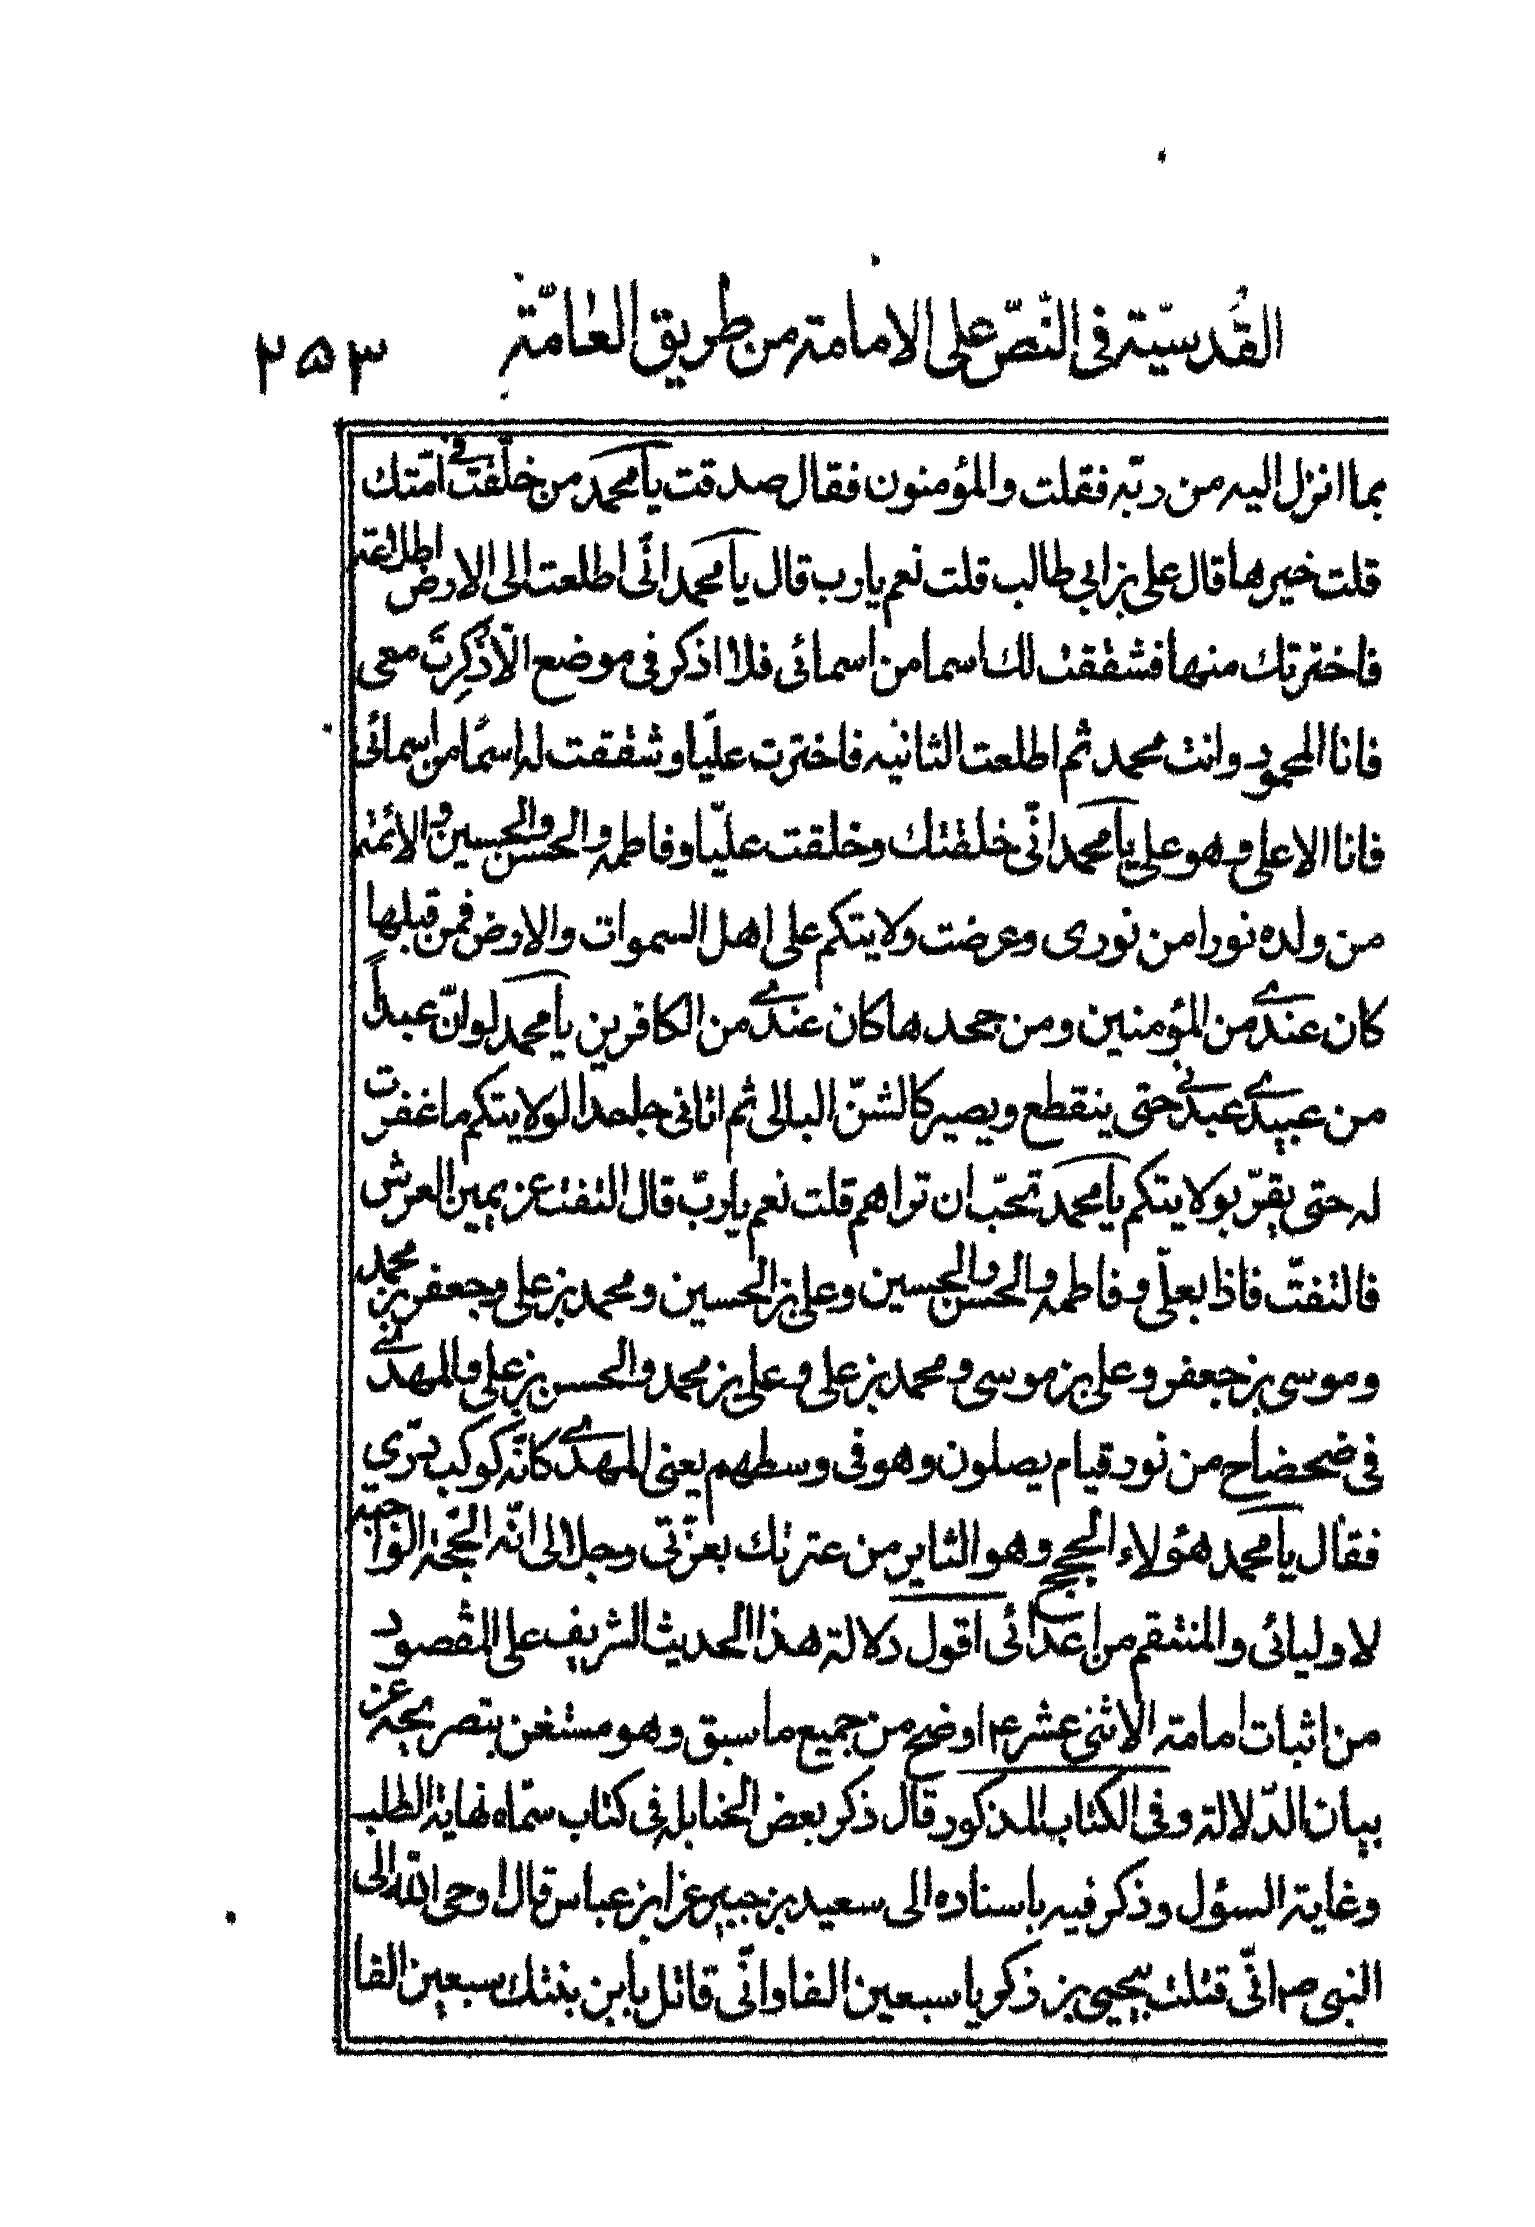 القُدسيّة فى النّصّ على الامامة من طريق العامّة ٢٥٣
بما انزل اليه من ربّه فقلت والمؤمنون فقال صدقت يا محمد من خلّفت فى امّتك
قلت خيرها قال على بن ابى طالب قلت نعم يا رب قال يا محمد انّى اطلعت الى الارض اطلاعة
فاخترتك منها فشققت لك اسما من اسمائى فلا اذكر فى موضع الّا ذُكِرتَ معى
فانا المحمود وانت محمد ثم اطلعت الثانيه فاخترت عليّا وشققت له اسمًا من اسمائى
فانا الاعلى وهو على يا محمد انّى خلقتك وخلقت عليّا وفاطمه والحسن والحسين والائمة
من ولده نورا من نورى وعرضت ولايتكم على اهل السموات والارض فمن قبلها
كان عندى من المؤمنين ومن جحدها كان عندى من الكافرين يا محمد لو انّ عبداً
من عبيدى عبدنى حتى ينقطع ويصير كالشنّ البالى ثم اتانى جاحدا لولايتكم ما غفرت
له حتى يقرّ بولايتكم يا محمد تحبّ ان تراهم قلت نعم يا ربّ قال التفت عن يمين العرش
فالتفتّ فاذا بعلّى وفاطمه والحسن والحسين وعلى بن الحسين ومحمد بن على وجعفر بن محمد
وموسى بن جعفر وعلى بن موسى ومحمد بن على وعلى بن محمد والحسن بن على والمهدى
فى ضحضاح من نور قيام يصلون وهو فى وسطهم يعنى المهدى كانّه كوكب درّي
فقال يا محمد هؤلاء الحجج وهو الثاير من عترتك بعزّتى وجلالى انّه الحجّة الواجبة
لاوليائى والمنتقم من اعدائى اقول دلالة هذا الحديث الشريف على المقصود
من اثبات امامة الاثنى عشر ع اوضح من جميع ما سبق وهو مستغن بتصريحه عن
بيان الدّلالة وفى الكتاب المذكور قال ذكر بعض الحنابله فى كتاب سمّاه نهاية الطلب
وغاية السؤل وذكر فيه باسناده الى سعيد بن جبير عن ابن عباس قال اوحى الله الى
النبى ص انّى قتلت بيحيى بن ذكريا سبعين الفا وانّى قاتل بابن بنتك سبعين الفا